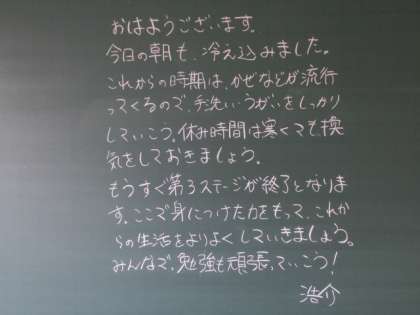 おはようございます。
今日の朝も、冷え込みました。
これからの時期は、かぜなどが流行
ってくるので、手洗い、うがいをしっかり
していこう。休み時間は寒くても換
気をしておきましょう。
もうすぐ第3ステージが終了となりま
す。ここで身につけた力をもって、これか
らの生活をよりよくしていきましょう。
みんなで、勉強も頑張っていこう!
浩介